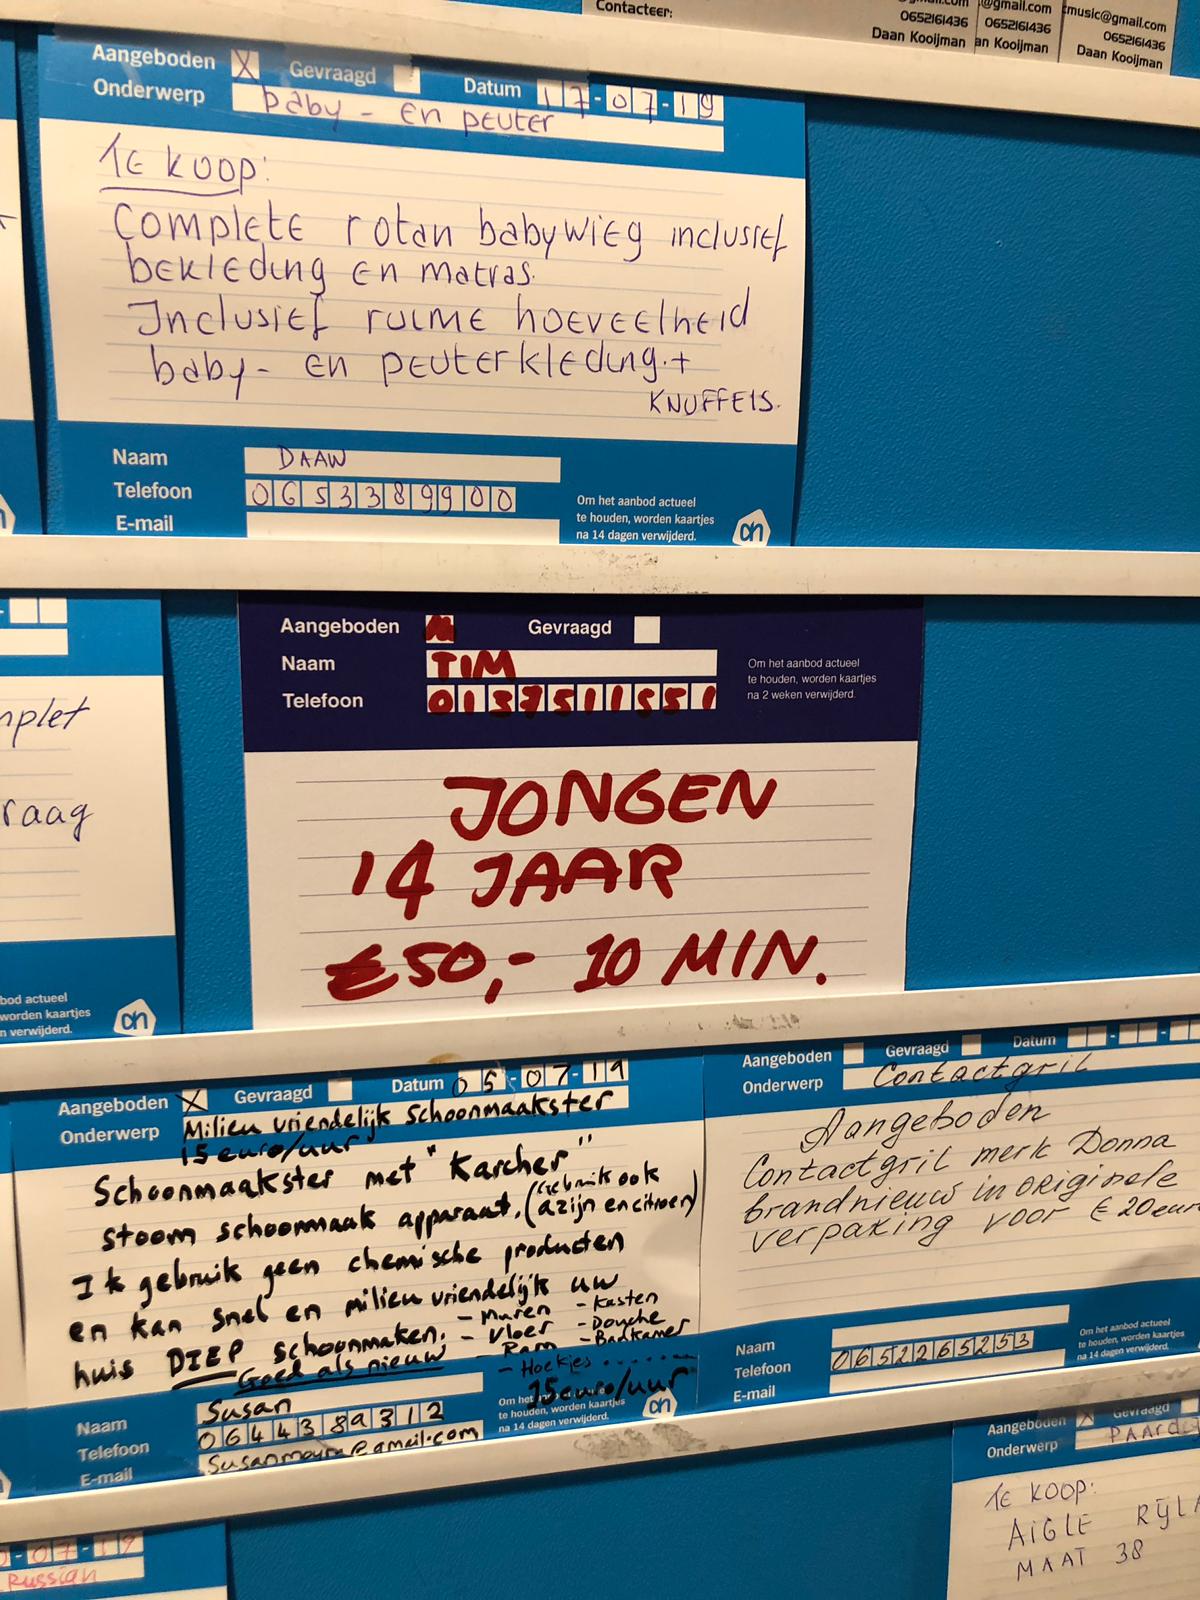 Contacteer:
@gmail.com
music@gmail.com
0652161436
0652161436
0652161436
Daan Kooijman
an Kooijman
Daan Kooijman
Aangeboden X Gevraagd Datum 17-07-19
Onderwerp baby - en peuter
TE KOOP:
COMPLETE rotan babywieg inclusief
bekleding en matras.
Inclusief ruime hoeveelheid
baby- en peuterkleding.+
KNUFFELS.
Naam DAAN
Telefoon 0653389900
E-mail
Om het aanbod actueel
te houden, worden kaartjes
na 14 dagen verwijderd.
ah
mplet
raag
bod actueel
worden kaartjes
n verwijderd.
ah
Aangeboden Gevraagd
Naam TIM
Telefoon 0137511551
Om het aanbod actueel
te houden, worden kaartjes
na 2 weken verwijderd.
JONGEN
14 JAAR
€50,- 10 MIN.
Aangeboden X Gevraagd Datum 05-07-19
Onderwerp Milieu vriendelijk Schoonmaakster
15 euro/uur
Schoonmaakster met "Karcher"
stoom schoonmaak apparaat. (Gebruik ook
azijn en citroen)
Ik gebruik geen chemische producten
en kan snel en milieu vriendelijk uw
huis DIEP schoonmaken.
Goed als nieuw
- Muren - Kasten
- Vloer - Douche
- Ram - Badkamer
- Hoekjes ......
15 euro/uur
Naam Susan
Telefoon 0644389312
E-mail
Om het
te houden, worden kaartjes
na 14 dagen verwijderd.
ah
Aangeboden Gevraagd Datum
Onderwerp Contactgril
Aangeboden
Contactgril merk Donna
brandnieuw in originele
verpaking voor € 20 eur
Naam
Telefoon 0652265253
E-mail
Om het aanbod actueel
te houden, worden kaartjes
na 14 dagen verwijderd.
0-07-19
Russian
Aangeboden X Gevraagd
Onderwerp PAARd
TE KOOP:
AIGLE RIJLA
MAAT 38